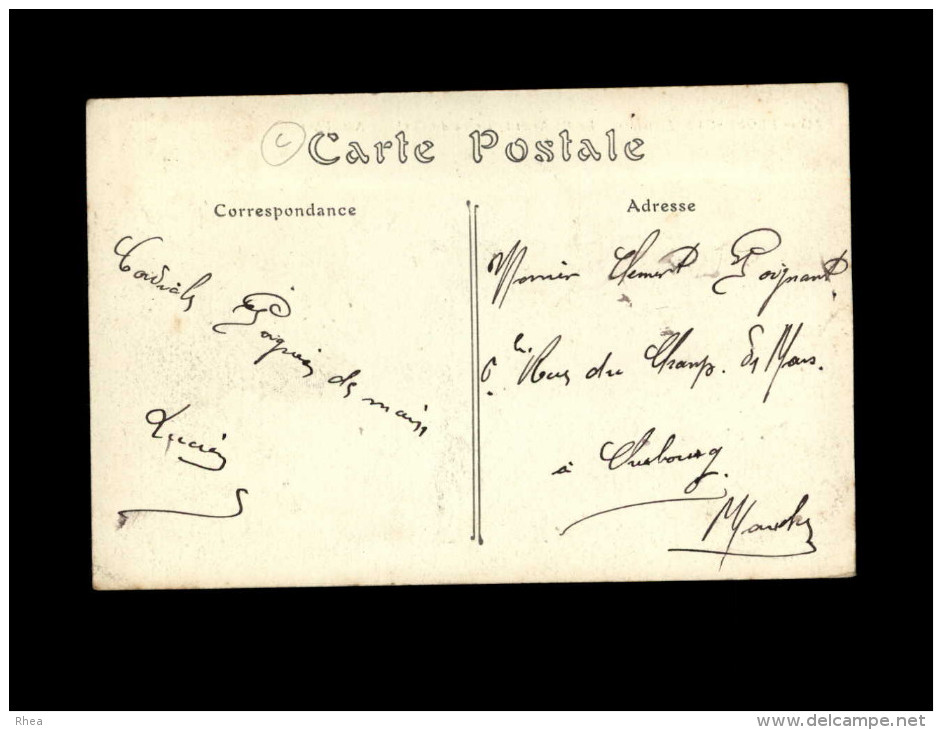 Carte Postale
Correspondance
Cordiale
Poignée de main
Lucien
Adresse
Clement Poignant
6 Rue du Champ de Mars.
à Cherbourg.
Manche
Rhea
www.delcampe.net